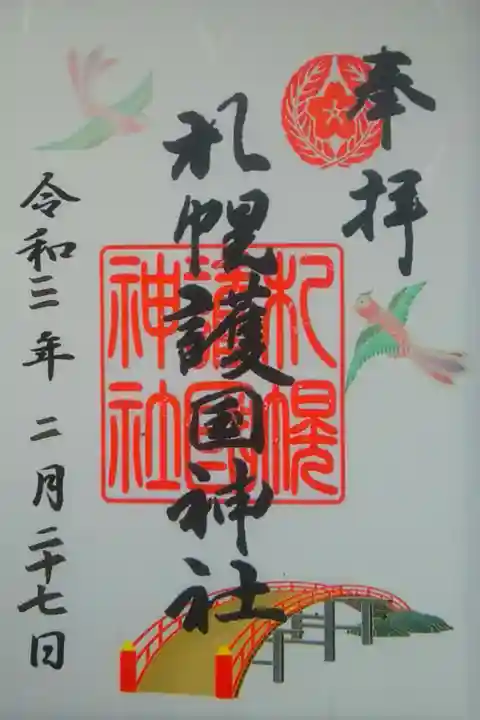 奉拝
札幌護国神社
札幌
護国
神社
令和三年 二月二十七日